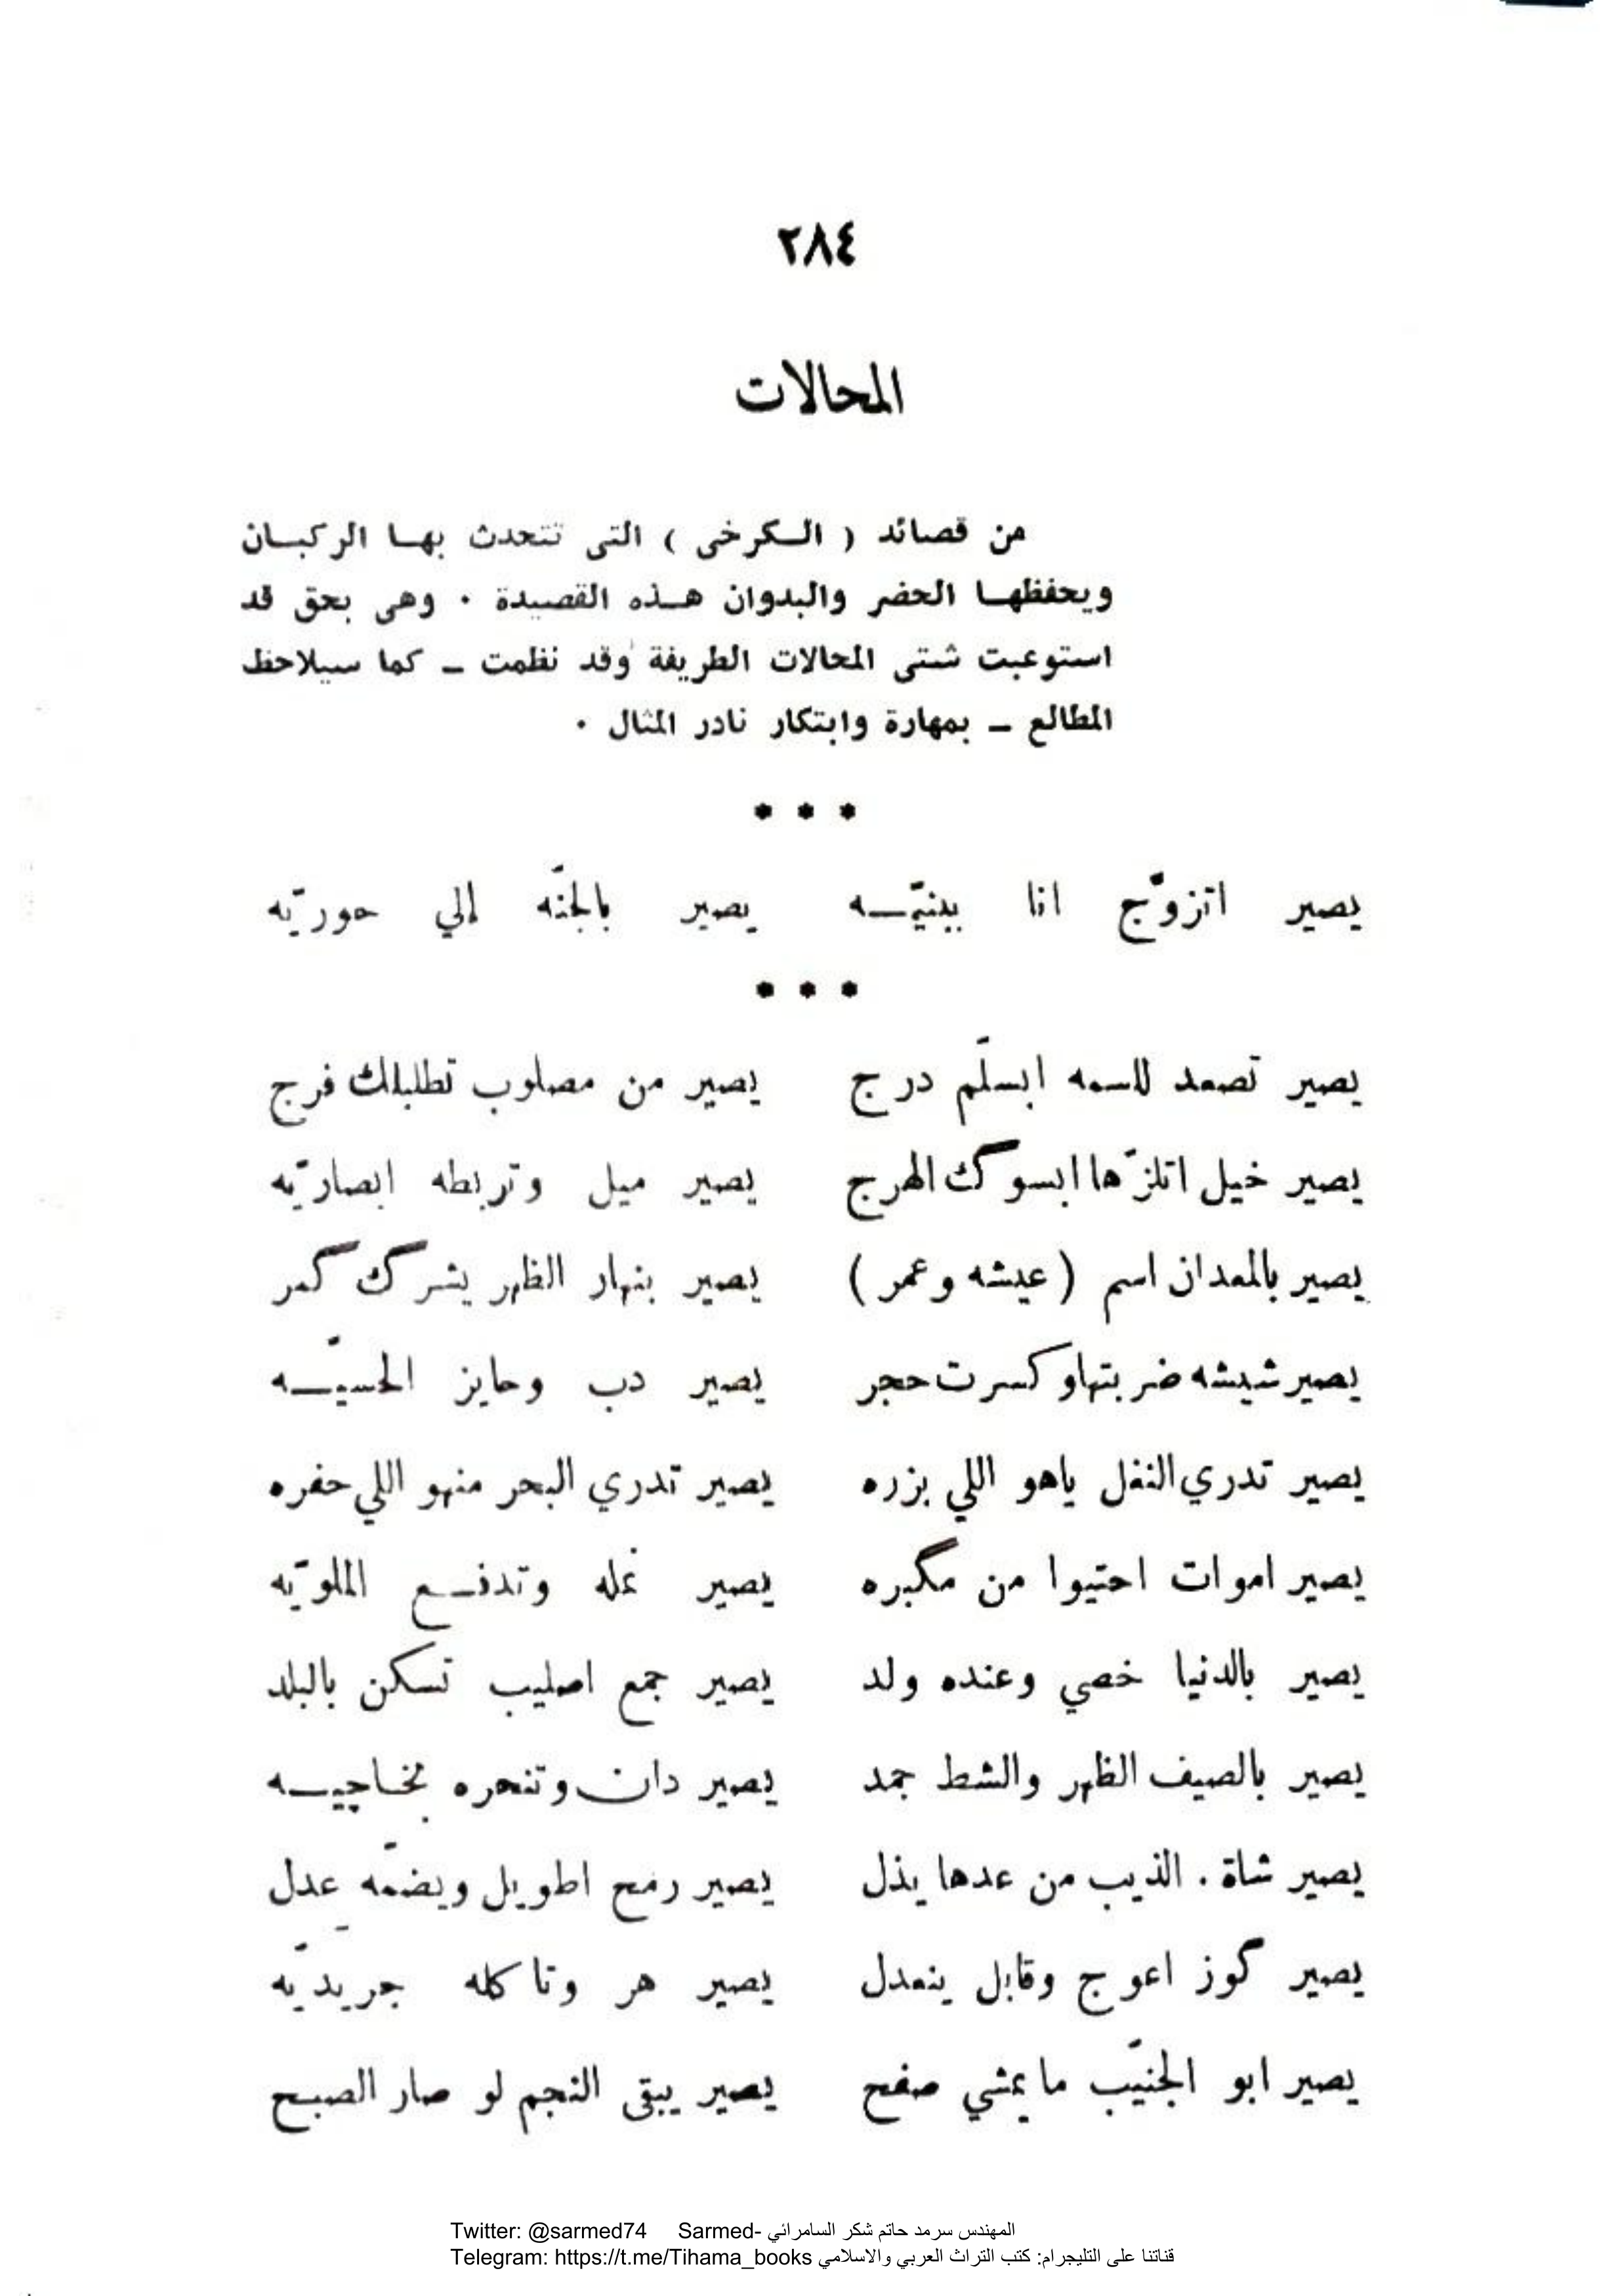 ٢٨٤
المحالات
من قصائد ( الكرخى ) التى تتحدث بها الركبان
ويحفظها الحضر والبدوان هذه القصيدة . وهى بحق قد
استوعبت شتى المحالات الطريفة وقد نظمت ـ كما سيلاحظ
المطالع ـ بمهارة وابتكار نادر المثال .
* * *
يصير اتزوّج انا ببنيّه يصير بالجنّه إلي حوريّه
* * *
يصير تصعد للسمه ابسلّم درج يصير من مصلوب تطلبلك فرج
يصير خيل اتلزّها ابسوگ الهرج يصير ميل وتربطه ابصاريّه
يصير بالمعدان اسم ( عيشه وعمر ) يصير بنهار الظهر يشرگ گمر
يصير شيشه ضربتها وكسرت حجر يصير دب وحايز الحسيّه
يصير تدري النفل ياهو اللي بزره يصير تدري البحر منهو اللي حفره
يصير اموات احتيوا من مگبره يصير نمله وتدفع الملويّه
يصير بالدنيا خصي وعنده ولد يصير جمع اصليب تسكن بالبلد
يصير بالصيف الظهر والشط جمد يصير دان وتنحره بخاچيه
يصير شاة . الذيب من عدها يذل يصير رمح اطويل ويضمّه عدل
يصير گوز اعوج وقابل ينعدل يصير هر وتاكله جريديّه
يصير ابو الجنيّب ما يمشي صفح يصير يبقى النجم لو صار الصبح
Twitter: @sarmed74 Sarmed- المهندس سرمد حاتم شكر السامرائي
Telegram: https://t.me/Tihama_books قناتنا على التليجرام: كتب التراث العربي والاسلامي